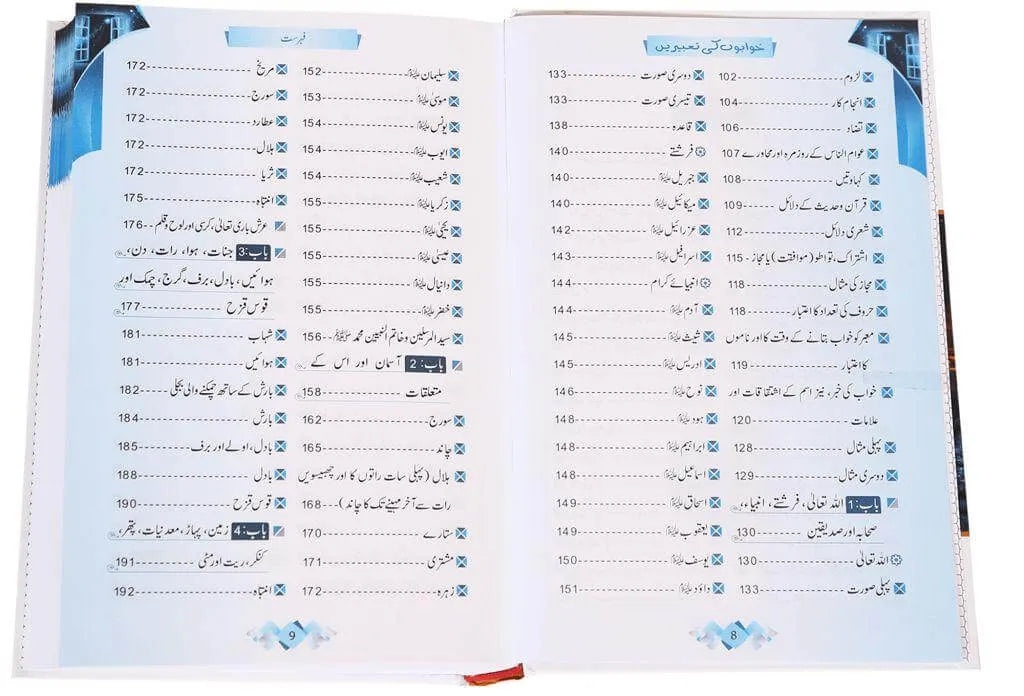 خوابوں کی تعبیریں
لزوم 102
انجام کار 104
تضاد 106
عوام الناس کے روزمرہ اور محاورے 107
کہاوتیں 108
قرآن و حدیث کے دلائل 109
شعری دلائل 112
اشتراک، تواطؤ (موافقت) یا مجاز 115
مجاز کی مثال 118
حروف کی تعداد کا اعتبار 118
معبر کو خواب بتانے کے وقت کا اور ناموں
کا اعتبار 119
خواب کی خبر، نیز اسم کے اشتقاقات اور
علامات 120
پہلی مثال 128
دوسری مثال 129
باب:1 اللہ تعالیٰ، فرشتے، انبیاء،
صحابہ اور صدیقین 130
اللہ تعالیٰ 130
پہلی صورت 133
دوسری صورت 133
تیسری صورت 133
قاعدہ 138
فرشتے 140
جبریل علیہ السلام 140
میکائیل علیہ السلام 140
عزرائیل علیہ السلام 142
اسرافیل علیہ السلام 143
انبیائے کرام 144
آدم علیہ السلام 144
شیث علیہ السلام 145
ادریس علیہ السلام 145
نوح علیہ السلام 146
ہود علیہ السلام 148
ابراہیم علیہ السلام 148
اسماعیل علیہ السلام 148
اسحاق علیہ السلام 149
یعقوب علیہ السلام 149
یوسف علیہ السلام 150
داؤد علیہ السلام 151
8
فہرست
سلیمان علیہ السلام 152
موسیٰ علیہ السلام 153
یونس علیہ السلام 154
ایوب علیہ السلام 154
شعیب علیہ السلام 154
زکریا علیہ السلام 155
یحییٰ علیہ السلام 155
عیسیٰ علیہ السلام 155
دانیال علیہ السلام 155
خضر علیہ السلام 155
سید المرسلین و خاتم النبیین محمد ﷺ 156
باب:2 آسمان اور اس کے
متعلقات 158
سورج 162
چاند 165
ہلال (پہلی سات راتوں کا اور چھبیسویں
رات سے آخر مہینے تک کا چاند) 168
ستارے 170
مشتری 171
زہرہ 172
مریخ 172
سورج 172
عطارد 172
ہلال 172
ثریا 172
انتباہ 175
عرش باری تعالیٰ، کرسی اور لوح و قلم 176
باب:3 جنات، ہوا، رات، دن،
ہوائیں، بادل، برف، گرج، چمک اور
قوس قزح 177
شہاب 181
ہوائیں 181
بارش کے ساتھ چمکنے والی بجلی 182
بارش 184
بادل، اولے اور برف 185
بادل 188
قوس قزح 190
باب:4 زمین، پہاڑ، معدنیات، پتھر،
کنکر، ریت اور مٹی 191
انتباہ 192
9